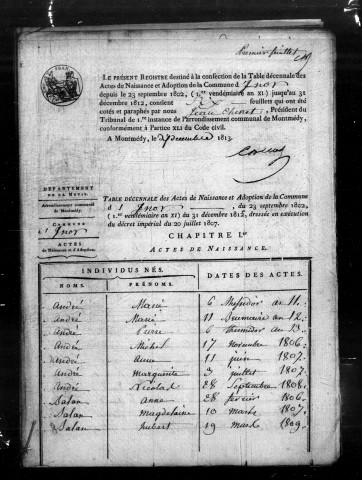 premier feuillet
LE PRÉSENT REGISTRE destiné à la confection de la Table décennale des
Actes de Naissance et Adoption de la Commune d'Inor
depuis le 23 septembre 1802, (1.er vendémiaire an XI) jusqu'au 31
décembre 1812, contient six feuillets qui ont été
cotés et paraphés par nous Président du
Tribunal de 1.re instance de l'arrondissement communal de Montmédy,
conformément à l'article XLI du Code civil.
A Montmédy, le décembre 1813.
DÉPARTEMENT
DE LA MEUSE.
Arrondissement communal
de Montmédy.
COMMUNE
d'Inor
ACTES
de Naissance et d'Adoption.
TABLE DÉCENNALE des Actes de Naissance et Adoption de la Commune
d'Inor , du 23 septembre 1802,
(1.er vendémiaire an XI) du 31 décembre 1812, dressée en exécution
du décret impérial du 20 juillet 1807.
CHAPITRE I.er
ACTES DE NAISSANCE.
INDIVIDUS NÉS. DATES DES ACTES.
NOMS. PRÉNOMS.
André Marie 6 Messidor an 11.
André Marie 11 Brumaire an 12.
André Pierre 6 thermidor an 13.
André Michel 17 novembre 1806.
André anne 11 juin 1807.
André marguerite 3 juillet 1807.
André Nicolas 28 Septembre 1808.
Balan anne 28 fevrier 1806.
Balan magdelaine 10 mars 1807.
Balan hubert 19 mars 1809.